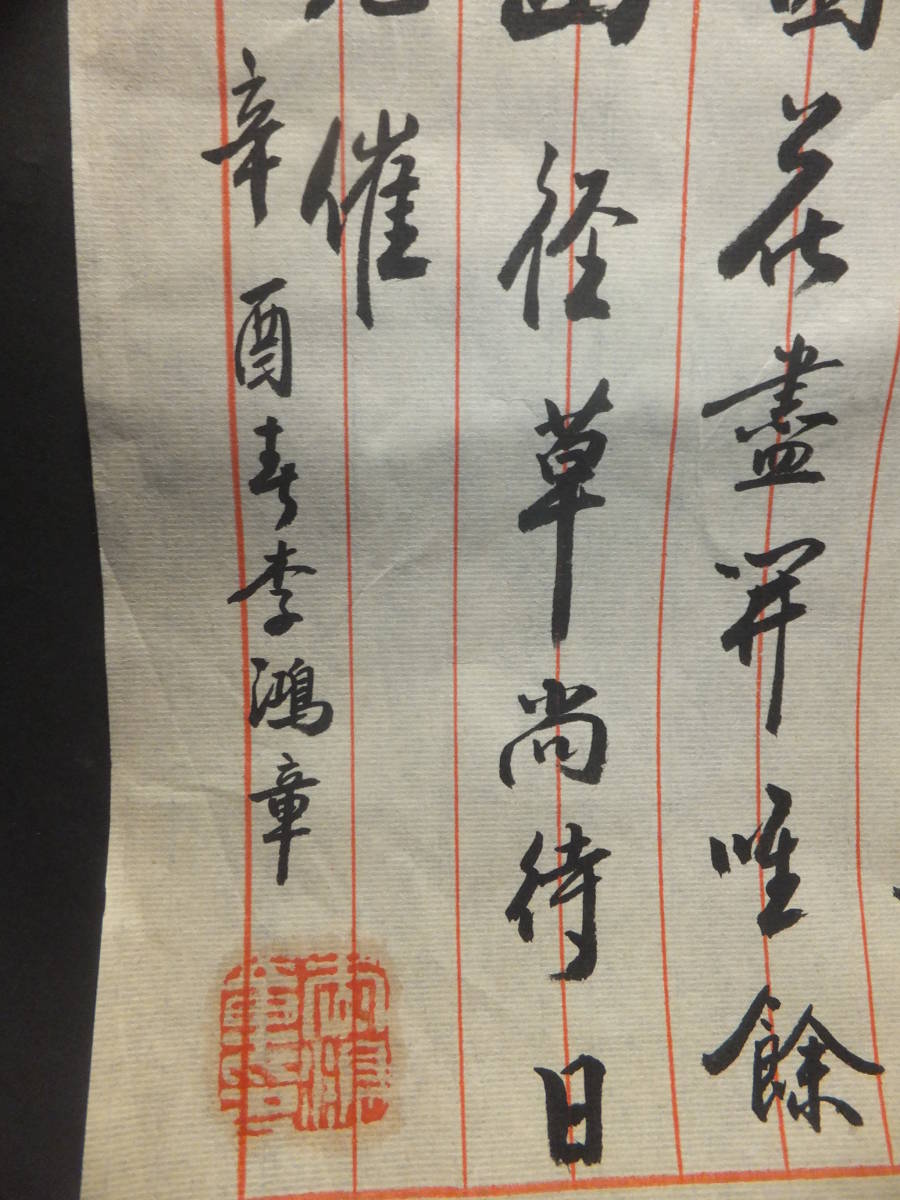 花盡開唯餘
径草尚待日
催
辛酉春李鴻章